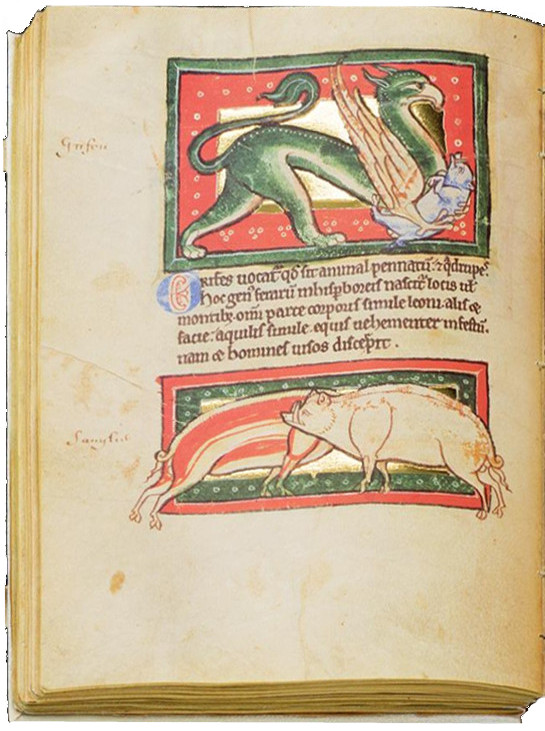 Grifon
Grifes uocat̃ qđ sit animal pennatũ. ⁊ qdrupes.
hoc gen' ferarũ in hisperboreis nascit̃ locis ut
montib;. omi parte corporis simile leoni. alis &
facie: aquilis simile. equis uehementer infestũ.
nam & homines uisos discerpit.